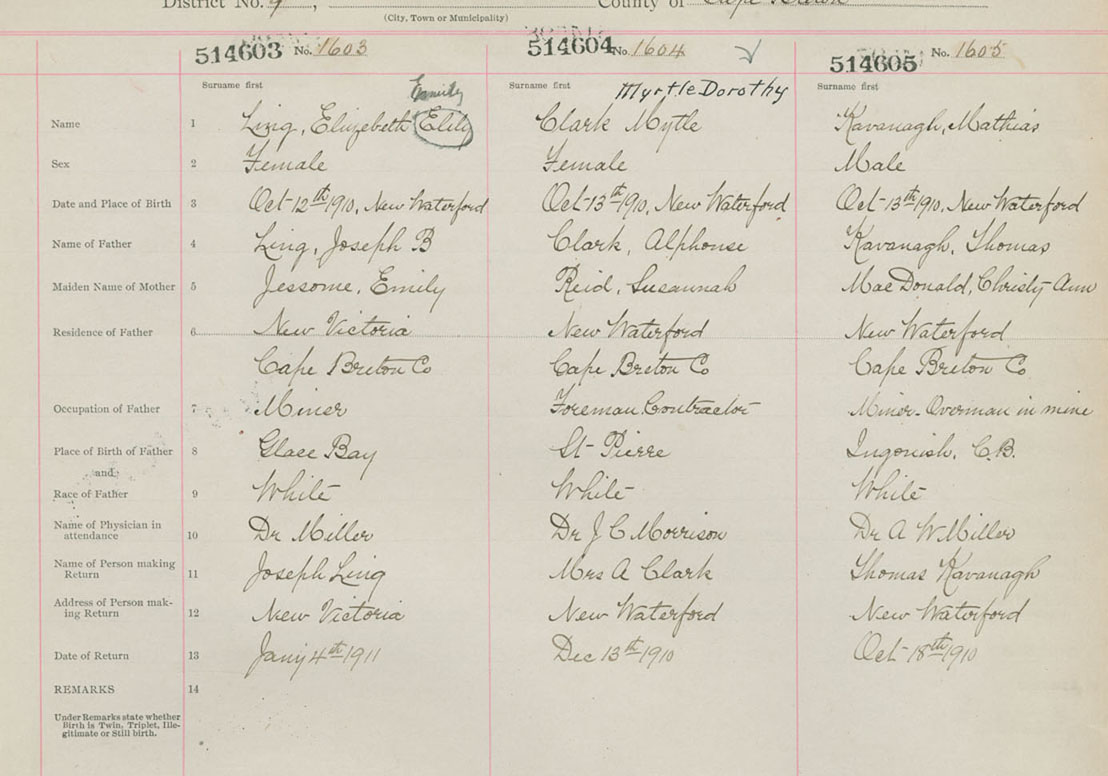 District No. 9, County of Cape Breton
(City, Town or Municipality)
514603 No. 1603 514604 No. 1604 514605 No. 1605
Surname first Surname first Surname first
Emily Myrtle Dorothy
Name 1 Ling, Elizebeth Elily Clark Mytle Kavanagh, Mathias
Sex 2 Female Female Male
Date and Place of Birth 3 Oct 12th 1910, New Waterford Oct 13th 1910, New Waterford Oct 13th 1910, New Waterford
Name of Father 4 Ling, Joseph B Clark, Alphonse Kavanagh, Thomas
Maiden Name of Mother 5 Jessome, Emily Reid, Susannah MacDonald, Christy Ann
Residence of Father 6 New Victoria New Waterford New Waterford
Cape Breton Co Cape Breton Co Cape Breton Co
Occupation of Father 7 Miner Foreman Contractor Miner - Overman in mine
Place of Birth of Father 8 Glace Bay St Pierre Ingonish, C.B.
and
Race of Father 9 White White White
Name of Physician in attendance 10 Dr Miller Dr J C Morrison Dr A W Miller
Name of Person making Return 11 Joseph Ling Mrs A Clark Thomas Kavanagh
Address of Person mak-ing Return 12 New Victoria New Waterford New Waterford
Date of Return 13 Jany 4th 1911 Dec 13th 1910 Oct 18th 1910
REMARKS 14
Under Remarks state whether
Birth is Twin, Triplet, Ille-
gitimate or Still birth.